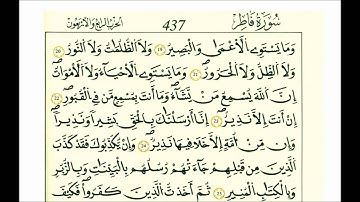 سُورَةُ فَاطِرٍ 437 الحزب الرابع والأربعون
وَمَا يَسْتَوِي الْأَعْمَىٰ وَالْبَصِيرُ ١٩ وَلَا الظُّلُمَاتُ وَلَا النُّورُ ٢٠
وَلَا الظِّلُّ وَلَا الْحَرُورُ ٢١ وَمَا يَسْتَوِي الْأَحْيَاءُ وَلَا الْأَمْوَاتُ
إِنَّ اللَّهَ يُسْمِعُ مَنْ يَشَاءُ وَمَا أَنْتَ بِمُسْمِعٍ مَنْ فِي الْقُبُورِ ٢٢
إِنْ أَنْتَ إِلَّا نَذِيرٌ ٢٣ إِنَّا أَرْسَلْنَاكَ بِالْحَقِّ بَشِيرًا وَنَذِيرًا
وَإِنْ مِنْ أُمَّةٍ إِلَّا خَلَا فِيهَا نَذِيرٌ ٢٤ وَإِنْ يُكَذِّبُوكَ فَقَدْ كَذَّبَ
الَّذِينَ مِنْ قَبْلِهِمْ جَاءَتْهُمْ رُسُلُهُمْ بِالْبَيِّنَاتِ وَبِالزُّبُرِ
وَبِالْكِتَابِ الْمُنِيرِ ٢٥ ثُمَّ أَخَذْتُ الَّذِينَ كَفَرُوا فَكَيْفَ